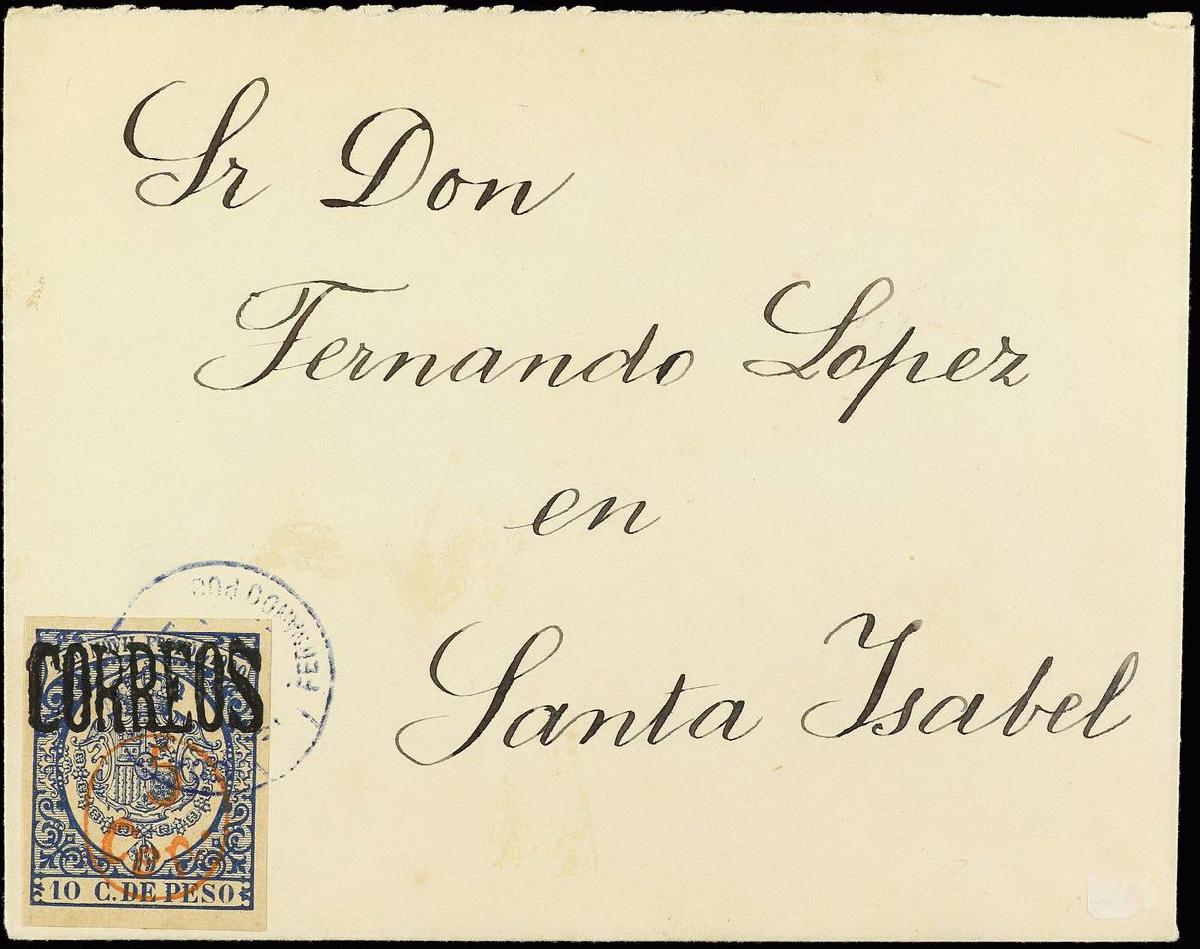 Sr Don
Fernando Lopez
en
Santa Isabel
CORREOS
5
Cen
10 C. DE PESO
FERNANDO POO